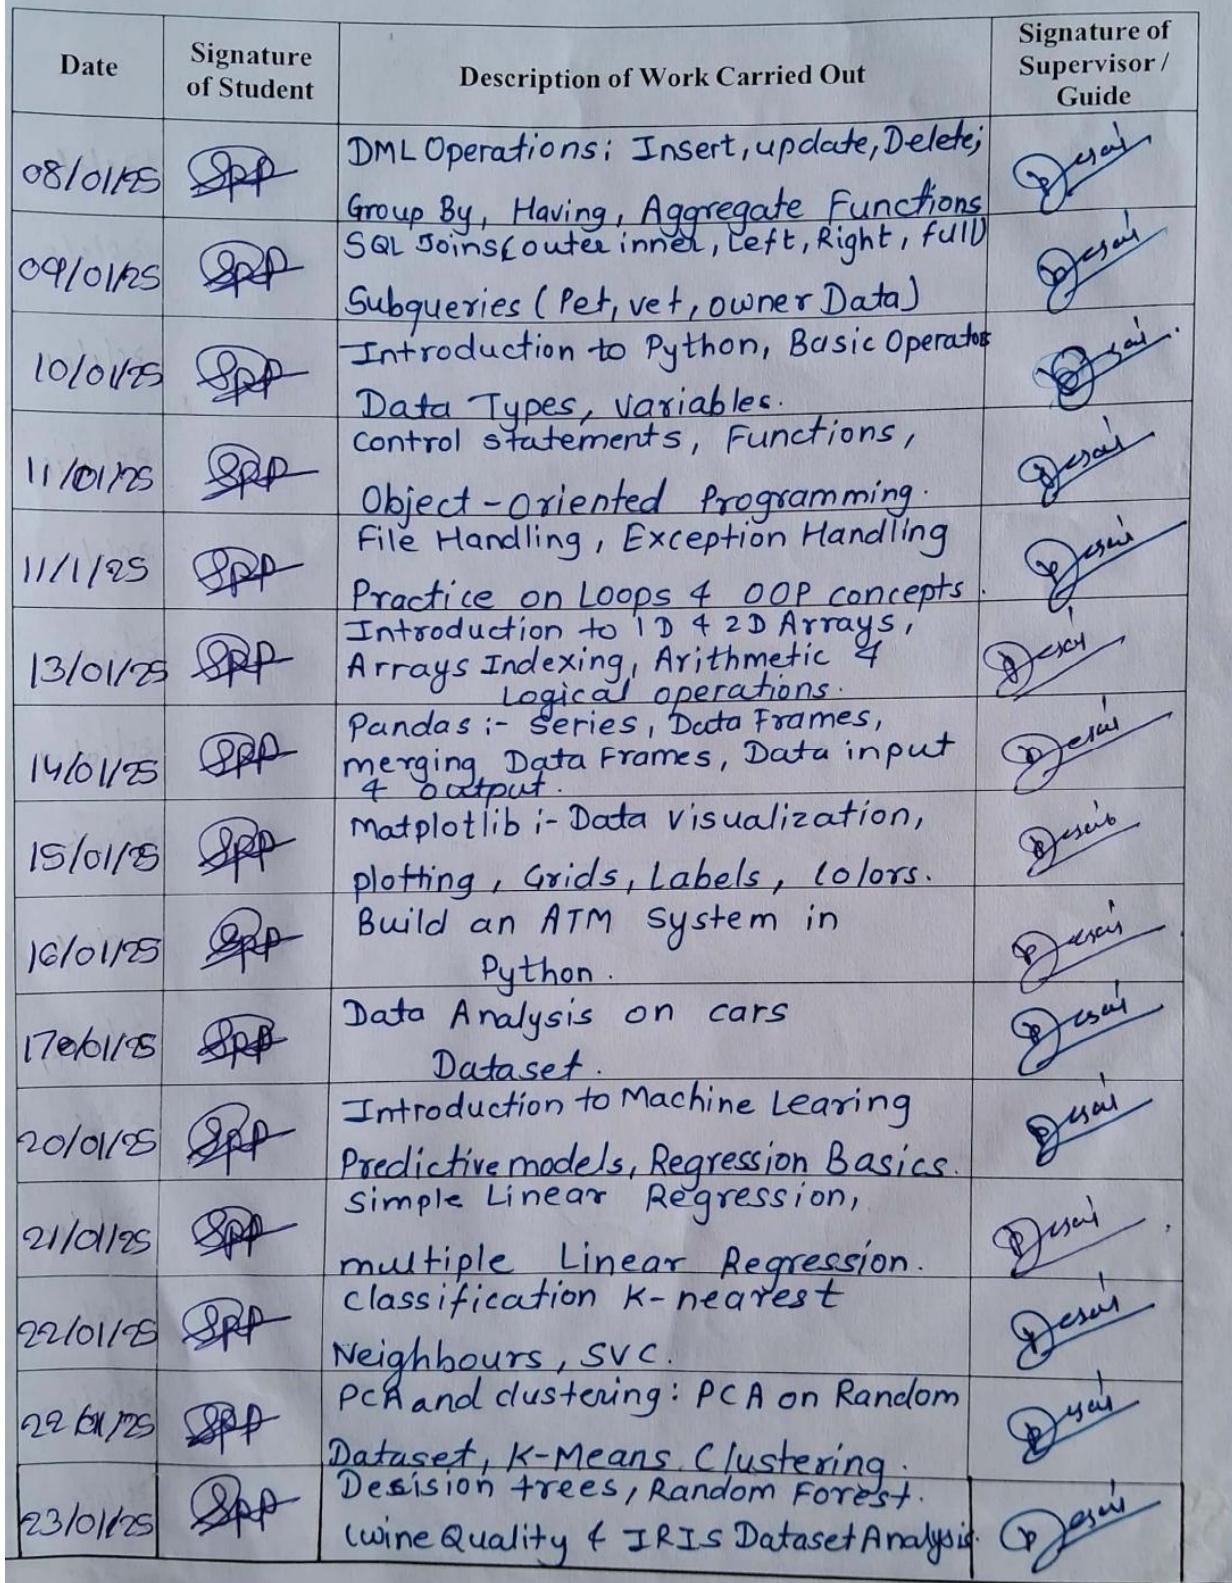 Date
Signature
of Student
Description of Work Carried Out
Signature of
Supervisor /
Guide
08/01/25
SPP
DML Operations: Insert, update, Delete;
Group By, Having, Aggregate Functions
Desai
09/01/25
SPP
SQL Joins(outer inner, Left, Right, full)
Subqueries (Pet, vet, owner Data)
Desai
10/01/25
SPP
Introduction to Python, Basic Operators
Data Types, variables.
Desai
11/01/25
SPP
Control statements, Functions,
Object-oriented Programming.
Desai
11/1/25
SPP
File Handling, Exception Handling
Practice on Loops & OOP concepts.
Desai
13/01/25
SPP
Introduction to 1D & 2D Arrays,
Arrays Indexing, Arithmetic &
Logical operations.
Desai
14/01/25
SPP
Pandas :- Series, Data Frames,
merging Data Frames, Data input
& output.
Desai
15/01/25
SPP
Matplotlib :- Data visualization,
plotting, Grids, Labels, colors.
Desai
16/01/25
SPP
Build an ATM System in
Python.
Desai
17/01/25
SPP
Data Analysis on cars
Dataset.
Desai
20/01/25
SPP
Introduction to Machine Learing
Predictive models, Regression Basics.
Desai
21/01/25
SPP
Simple Linear Regression,
multiple Linear Regression.
Desai
22/01/25
SPP
Classification K-nearest
Neighbours, SVC.
Desai
22/01/25
SPP
PCA and clustering: PCA on Random
Dataset, K-Means Clustering.
Desai
23/01/25
SPP
Desision trees, Random Forest.
(wine Quality & IRIS Dataset Analysis.
Desai